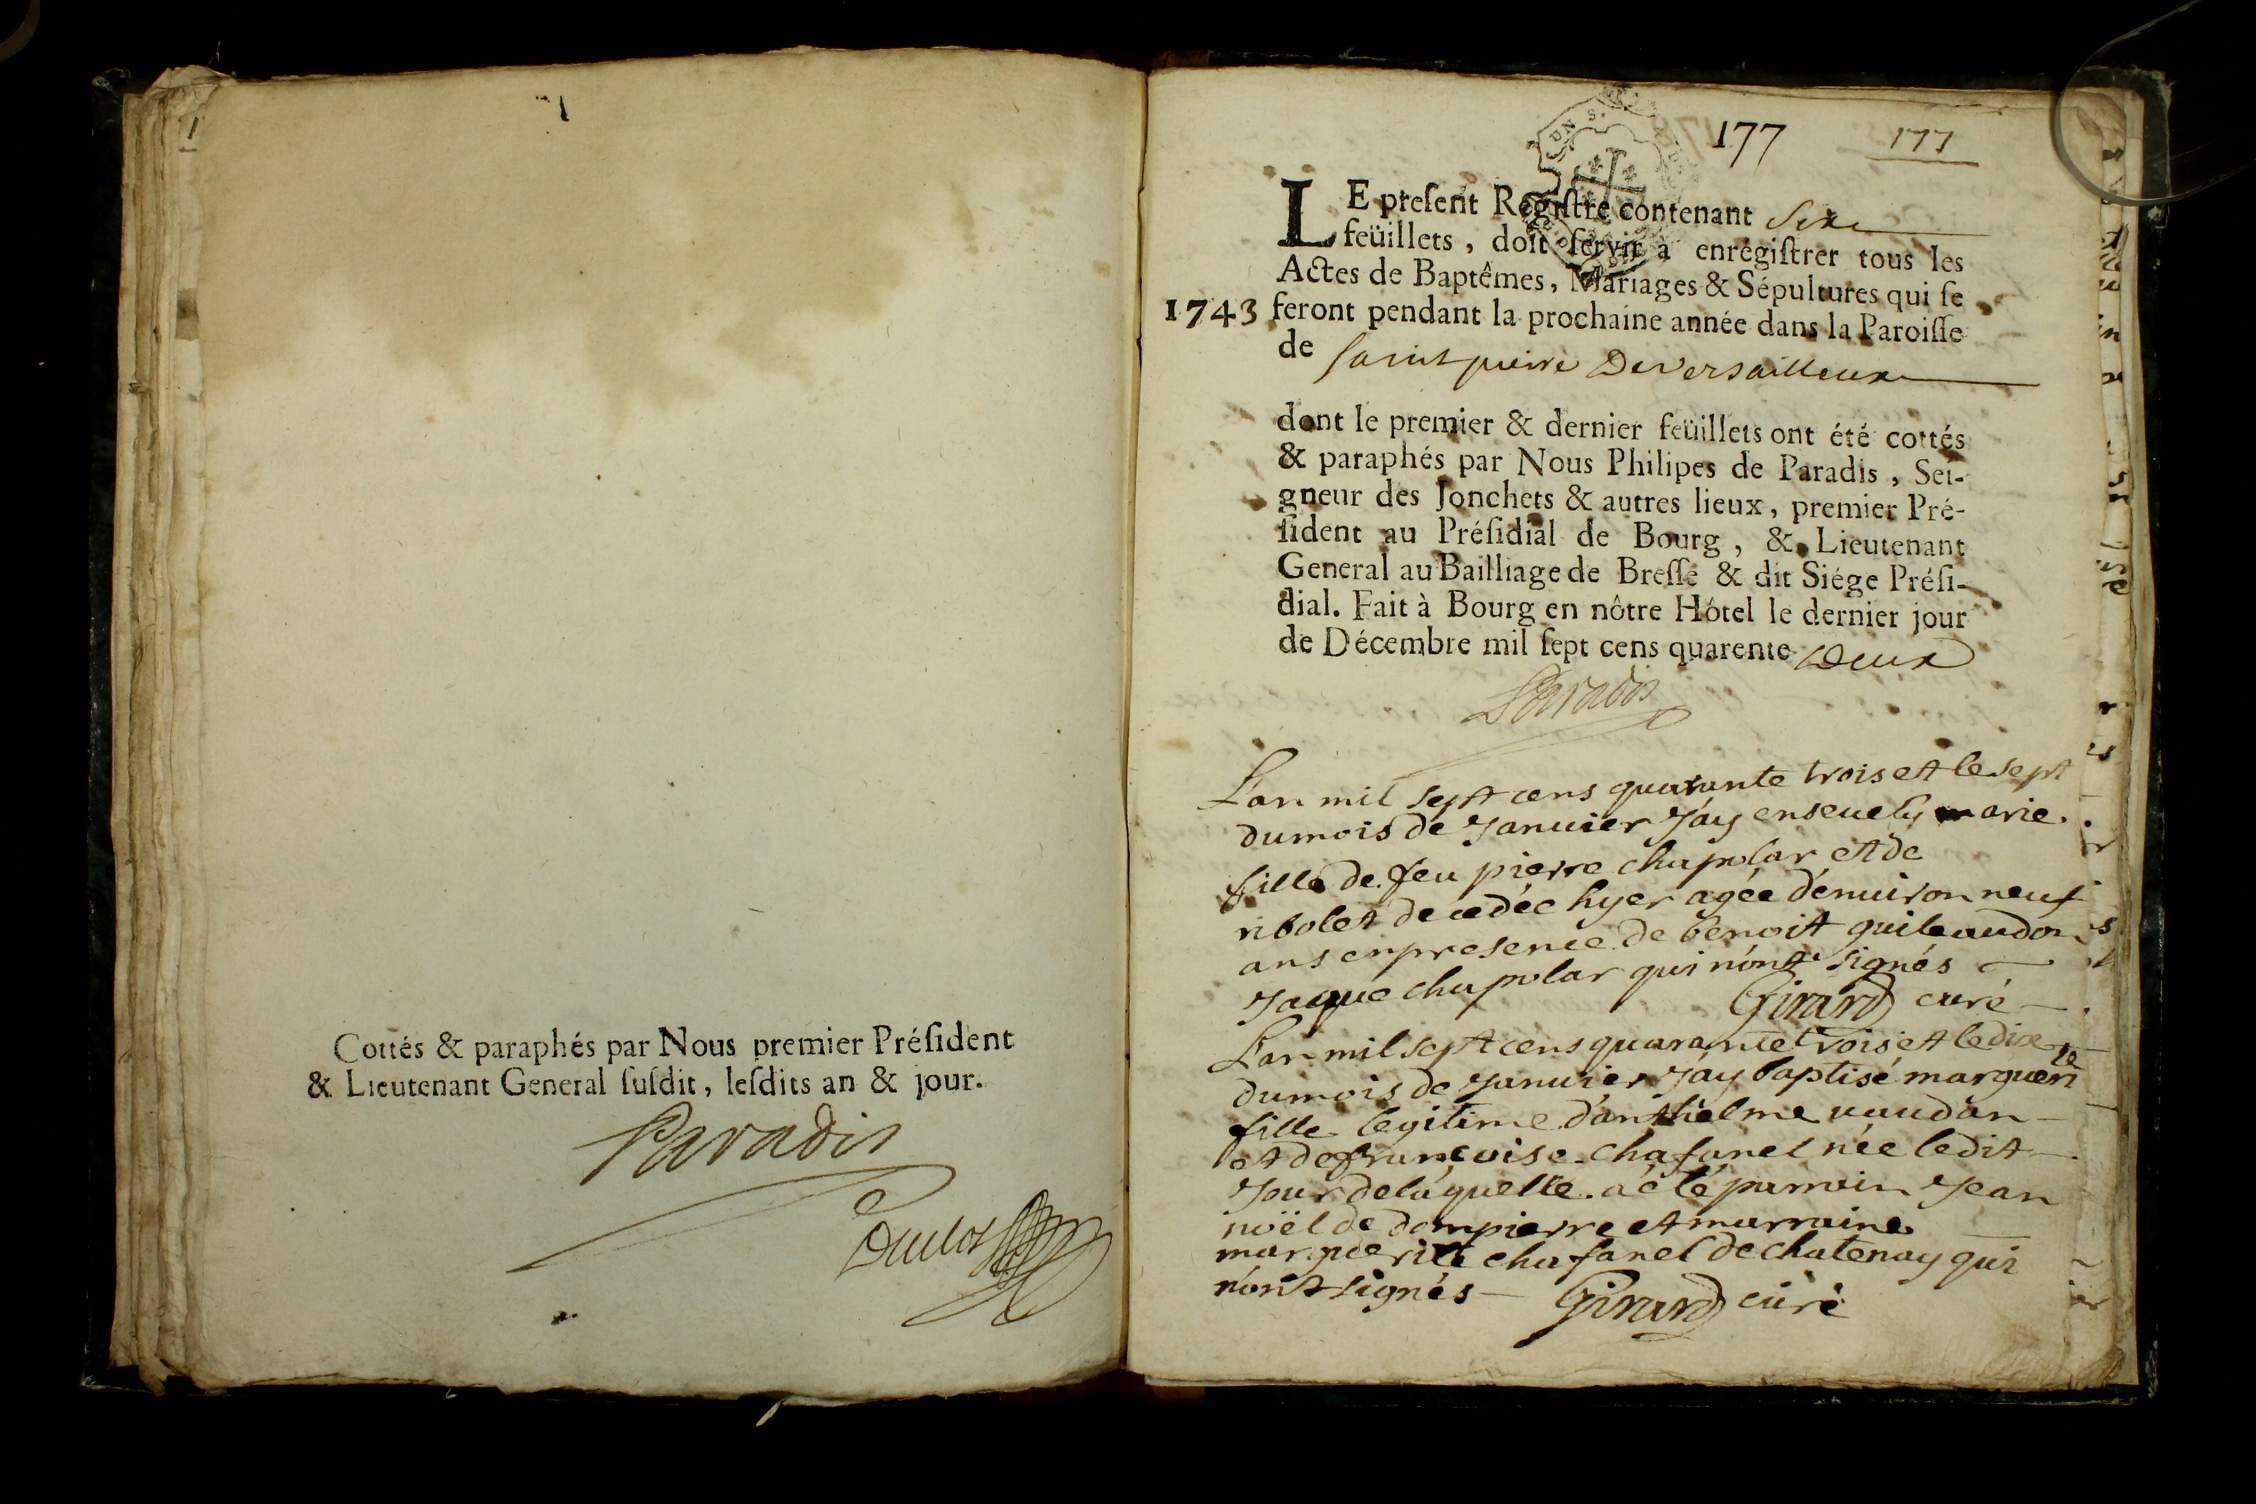 Cottés & paraphés par Nous premier Préſident
& Lieutenant General ſuſdit, leſdits an & jour.
Paradis
177
177
LE preſent Regiſtre contenant Six
feüillets, doit ſervir à enrégiſtrer tous les
Actes de Baptêmes, Mariages & Sépultures qui ſe
1743 feront pendant la prochaine année dans la Paroiſſe
de ſaint pierre De Versailleux
dont le premier & dernier feüillets ont été cottés
& paraphés par Nous Philipes de Paradis, Sei-
gneur des Jonchets & autres lieux, premier Pré-
ſident au Préſidial de Bourg, & Lieutenant
General au Bailliage de Breſſe & dit Siége Préſi-
dial. Fait à Bourg en nôtre Hôtel le dernier jour
de Décembre mil ſept cens quarente Deux
Paradis
L'an mil sept cens quarante trois et le sept
du mois de Januier J'ay enseuely marie
fille de feu pierre chapolar et de
ribolet decedée hyer agée d'enuiron neuf
ans en presence de benoit guilaudon
Jaque chapolar qui n'ont signés
Girard curé
L'an mil sept cens quarante trois et le dix
du mois de Januier J'ay baptisé marguerite
fille legitime d'anthelme uaudan
et de françoise chafanel née le dit
Jour de laquelle a été parrain Jean
noël de dompierre et marraine
marguerite chafanel de chatenay qui
n'ont signés Girard curé